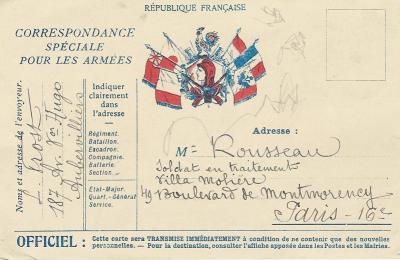 RÉPUBLIQUE FRANÇAISE
CORRESPONDANCE
SPÉCIALE
POUR LES ARMÉES
Noms et adresse de l'envoyeur.
187 Av. Vor Hugo
Aubervilliers
Indiquer
clairement
dans
l'adresse
Régiment.
Bataillon.
Escadron.
Compagnie.
Batterie.
Section.
État-Major.
Quart.-Général
Service.
Adresse :
Mr Rousseau
Soldat en traitement
Villa Molière
49 Boulevard de Montmorency
Paris - 16e
OFFICIEL : Cette carte sera TRANSMISE IMMÉDIATEMENT à condition de ne contenir que des nouvelles
personnelles. — Pour la destination, consulter l'affiche apposée dans les Postes et les Mairies.